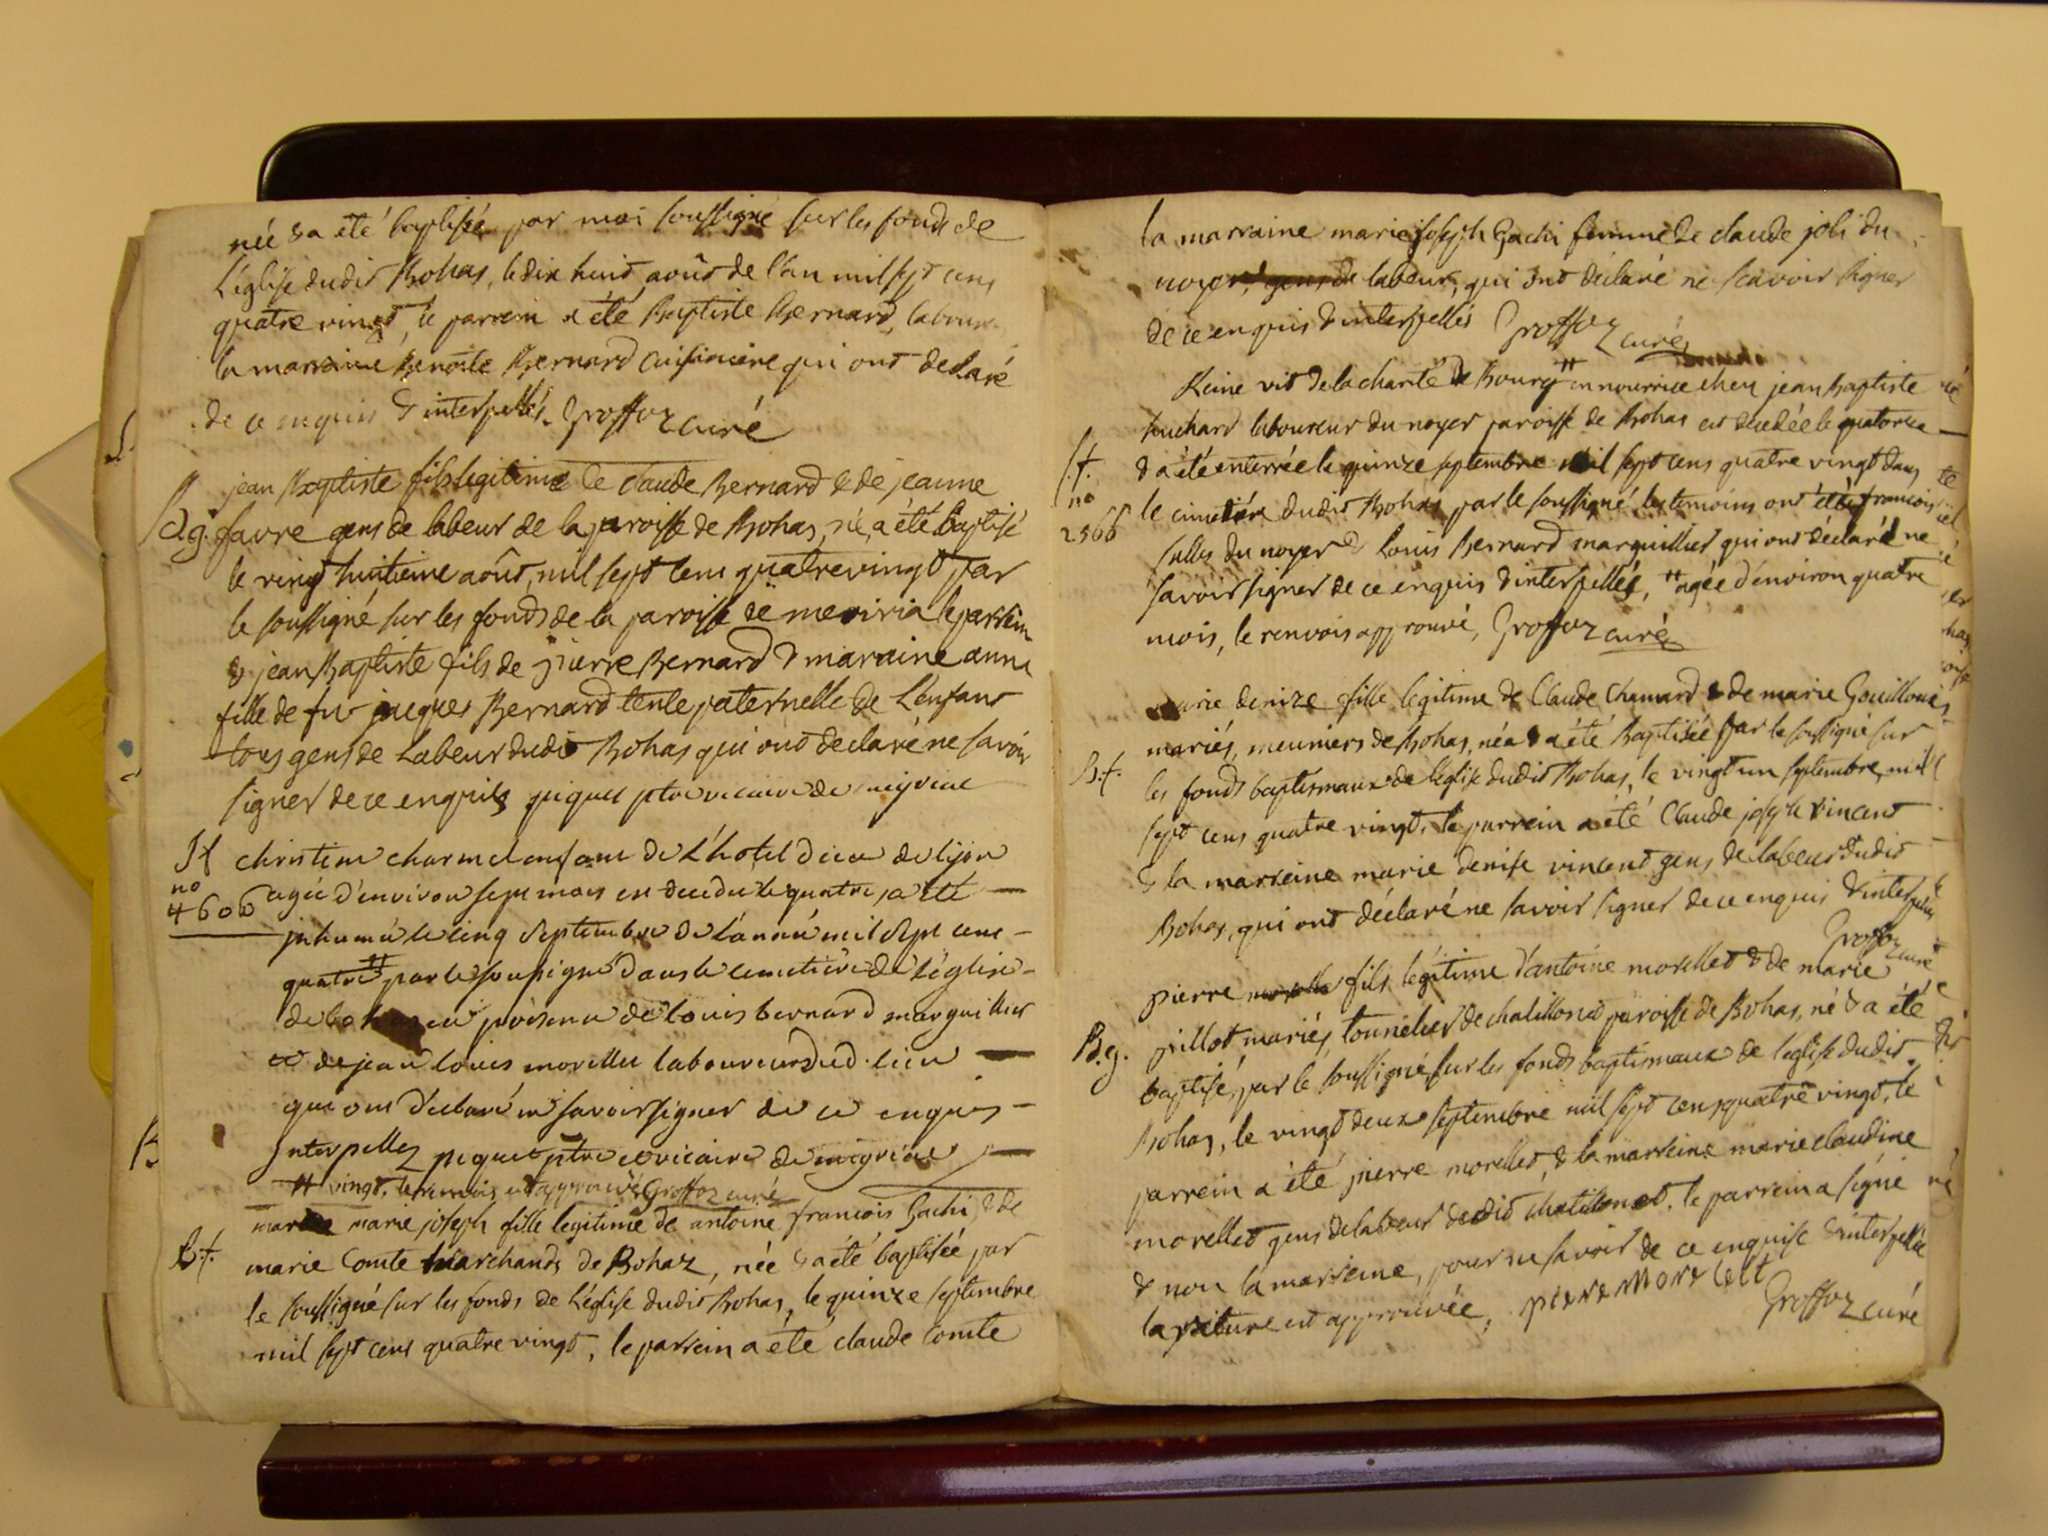 née & a été baptisée par moi soussigné sur les fonds de
L'église dudit Bohas, le dix huit août de l'an mil sept cens
quatre vingt, le parrein a été Baptiste Bernard, labour
la marraine Benoite Bernard cuisiniere qui ont declaré
de ce enquis & interpellés. Groffoz curé
jean Baptiste fils legitime de claude Bernard & de jeanne
B.g. favre gens de labeur de la paroisse de Bohas, né, a été baptisé
le vingt huitieme août, mil sept cens quatre vingt par
le soussigné sur les fonds de la paroisse de meiria le parrein
& jean Baptiste fils de pierre Bernard & maraine anne
fille de fu jacques Bernard tente paternelle de L'enfant
tous gens de Labeur dudit Bohas qui ont declaré ne savoir
signer de ce enquis piquet ptre vicaire de meyriat
St christine charmet enfant de L'hotel dieu de lijon
no agée d'environ sept mois est decedée le quatre, a été
4606
inhumé le cinq septembre de L'anné mil sept cent
quatre # par le soussigné dans le cemetiere de L'église
de bohas en présence de louis bernard marguillier
et de jean louis morellet laboureurs dud. lieu
qui ont déclaré ne savoir signer de ce enquis
Interpellez piquet ptre et vicaire de meyriat
# vingt, le renvois est approuvé Groffoz curé
marie joseph fille legitime de antoine francois Gachi, & de
B.f. marie Comte marchands de Bohaz, née & a été baptisée par
le soussigné sur les fonds de L'église dudit Bohas, le quinze septembre
mil sept cens quatre vingt, le parrein a été claude Comte
la marraine marie joseph Gachi femme de claude joli du
noyer, gens de labeur, qui ont déclaré ne scavoir signer
de ce enquis & interpellés Groffoz curé
Reine vit de la charité de Bourg # en nourrice chez jean Baptiste
buchard laboureur du noyer paroisse de Bohas est decedée le quatorze
S.f. & a été enterrée le quinze septembre mil sept cens quatre vingt dans
no le cimetiére dudit Bohas par le soussigné les temoins ont étés francois
2566
sulles du noyer & Louis Bernard marguillier qui ont déclaré ne
savoir signer de ce enquis & interpellés, # agée d'environ quatre
mois, le renvois approuvé, Groffoz curé
marie denize fille legitime de Claude Chanard & de marie Gouilloux
mariés, meuniers de Bohas, née & a été Baptisée par le soussigné sur
B.f. les fonds baptismaux de l'eglise dudit Bohas, le vingt un septembre, mil
sept cens quatre vingt, le parrein a été Claude joseph vincent
& la marreine marie denise vincent gens de labeur dudit
Bohas, qui ont déclaré ne savoir signer de ce enquis & interpellés
Groffoz curé
pierre fils légitime d'antoine morellet & de marie
B.g. pillot mariés, tounelier de chatillonet paroisse de Bohas, né & a été
baptisé, par le soussigné sur les fonds baptismaux de leglise dudit
Bohas, le vingt deux septembre mil sept cens quatre vingt, le
parrein a été pierre morellet, & la marreine marie claudine
morellet gens de labeur dudit chatillonet. le parrein a signé
& non la marreine, pour ne savoir de ce enquise & interpellée
la rature est approuvée, piere morellet Groffoz curé